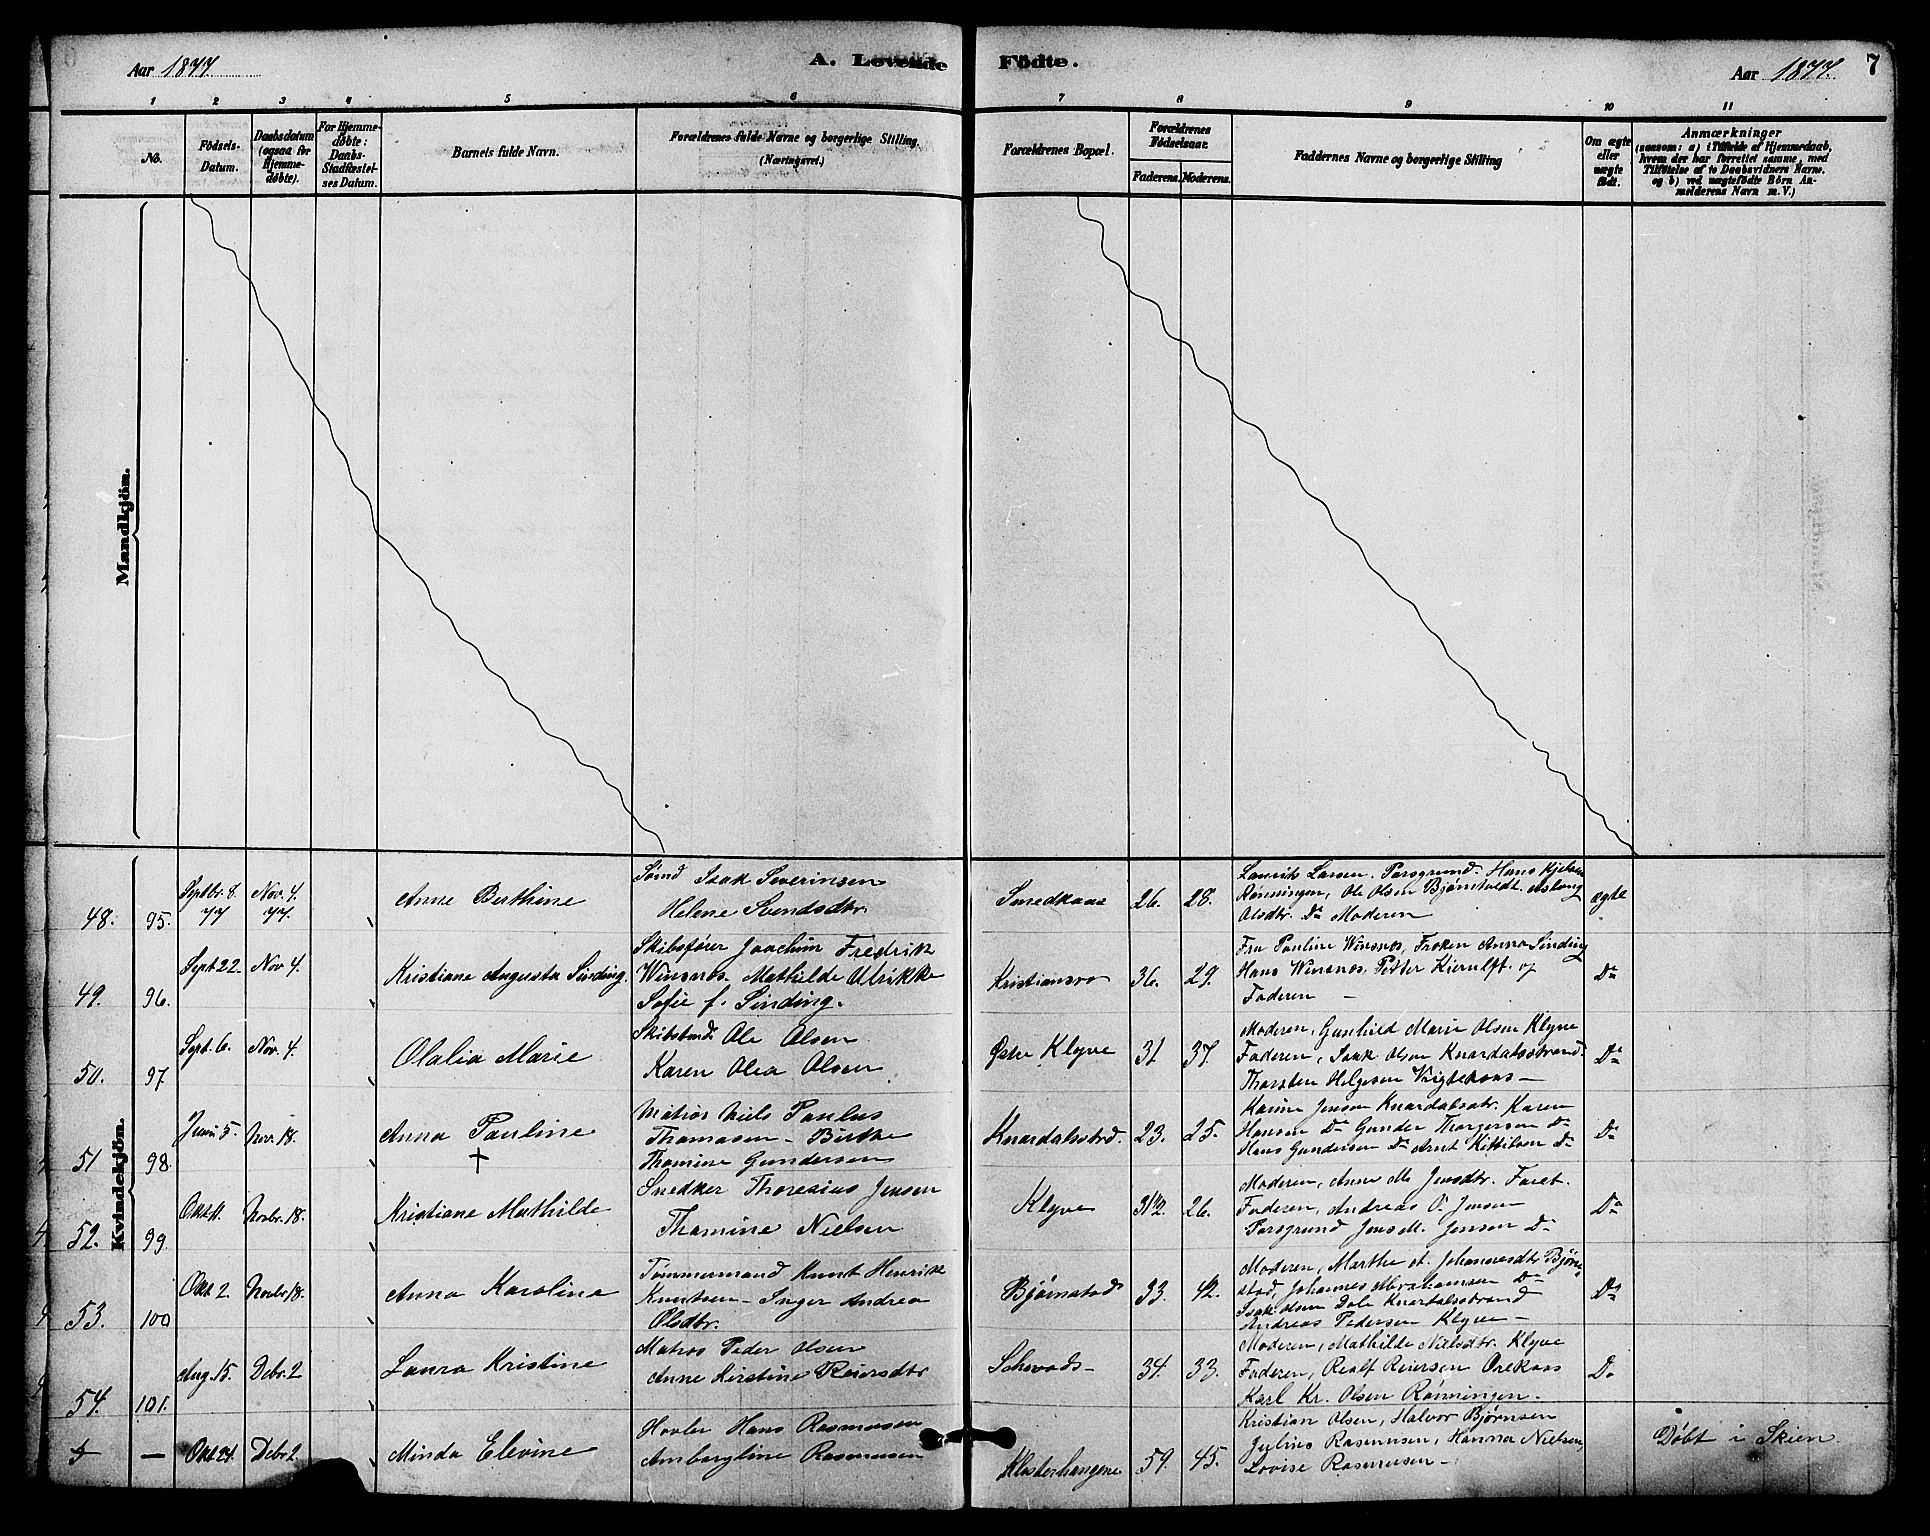 Aar 1877.
A. Levende Fødte.
Aar 1877.
7
1 2 3 4 5 6 7 8 9 10 11
No.
Födsels-Datum.
Daabsdatum (ogsaa for Hjemmedøbte).
For Hjemmedøbte: Daabs-Stadfæstelses Datum.
Barnets fulde Navn.
Forældrenes fulde Navne og borgerlige Stilling.
(Næringsvei.)
Forældrenes Bopæl.
Forældrenes Födselsaar.
Faderens. Moderens.
Faddernes Navne og borgerlige Stilling
Om ægte eller uægte født.
Anmærkninger
(saasom: a) i Tilfælde af Hjemmedaab,
hvem der har forrettet samme, med
Tilføielse af to Daabsvidners Navne.
og b) ved uægtefödte Börn An-
melderens Navn m. V.)
Mandkjön.
Kvindekjön.
48. 95. Septbr. 8. 77 Nov. 4. 77.
Anne Berthine
Isak Severinsen
Helene Svendsdtr.
Smedkaas 26. 28.
Laurits Larsen, Porsgrund. Hans Kjelsen
Rønningen, Ole Olsen Bjørntvedt. Aslaug
Olsdtr. Do Moderen
ægte
49. 96. Sept. 22. Nov 4.
Kristiane Augusta Sinding.
Skibsfører Joachim Fredrik
Winsnes. Mathilde Ulrikke
Sofie f. Sinding.
Kristiansro 36. 29.
Fru Pauline Winsnes, Frøken Anna Sinding
Hans Winsnes, Petter Kierulff. og
Faderen —
Do
50. 97 Sept. 6. Nov. 4.
Olalia Marie
Ole Olsen
Karen Olea Olsen
Østre Klyve 31 37.
Moderen, Gunhild Marie Olsen Klyve
Faderen, Isak Olsen Knardalsstrand.
Thorsten Helgesen Vrigtekaas —
Do
51 98. Juni 5. Nov. 18.
Anna Pauline
†
Matros Niels Paulus
Thomasen — Birthe
Thomine Gundersen
Knardalsstrd. 23. 25.
Karine Jensen Knardalsstr. Karen
Hansen Do Gunder Thorgersen Do
Hans Gundersen Do Arnt Kittilsen Do
Do
52. 99. Novbr. 18.
Kristiane Mathilde
Snedker Thoresius Jensen
Thomine Nielsen
Klyve 31½. 26.
Moderen, Anne M. Jensdtr. Faret.
Faderen, Andreas O. Jensen
Porsgrund Jens M. Jensen Do
Do
53. 100 Okt 2. Novbr 18.
Anna Karoline
Tømmermand Knut Henrik
Knutsen — Inger Andrea
Olsdtr.
Bjørnstad 33. 42.
Moderen, Marthe A. Johannesdtr Bjørn-
stad, Johannes Abrahamsen Do
Isak Olsen Dale Knardalsstrand
Andreas Pedersen Klyve —
Do
54. 101. Aug. 15. Debr. 2
Laura Kristine
Matros Peder Olsen
Anne Kirstine Reiersdtr
34. 33.
Moderen, Mathilde Nielsdtr. Klyve
Faderen, Realf Reiersen Orekaas
Karl Kr. Olsen Rønningen.
Do
— Okt 21. Debr 2.
Minda Elevine
Høvler Hans Rasmussen
Rasmussen
Klosterhaugene 59. 45.
Kristian Olsen, Halvor Bjørnsen
Julius Rasmussen, Hanna Nielsen,
Lovise Rasmussen —
Døbt i Skien